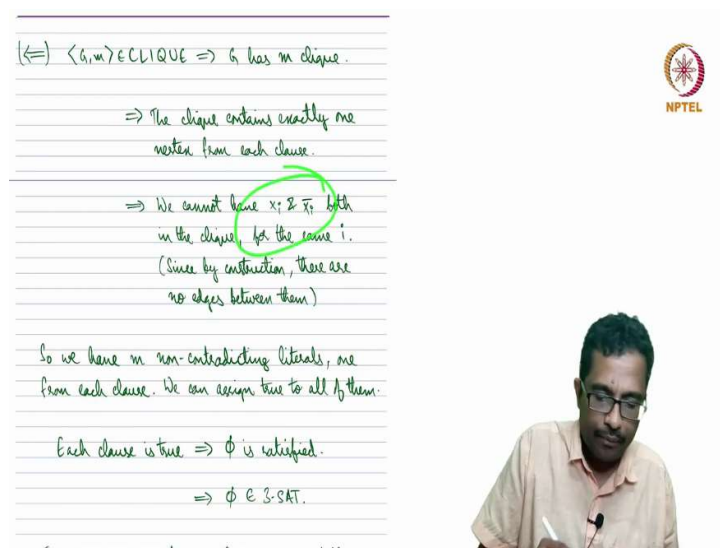 (⇐) ⟨G,m⟩ ∈ CLIQUE ⇒ G has m clique.
NPTEL
⇒ The clique contains exactly one
vertex from each clause.
⇒ We cannot have xᵢ & x̄ᵢ both
in the clique, for the same i.
(Since by construction, there are
no edges between them)
So we have m non-contradicting literals, one
from each clause. We can assign true to all of them.
Each clause is true ⇒ ϕ is satisfied.
⇒ ϕ ∈ 3-SAT.